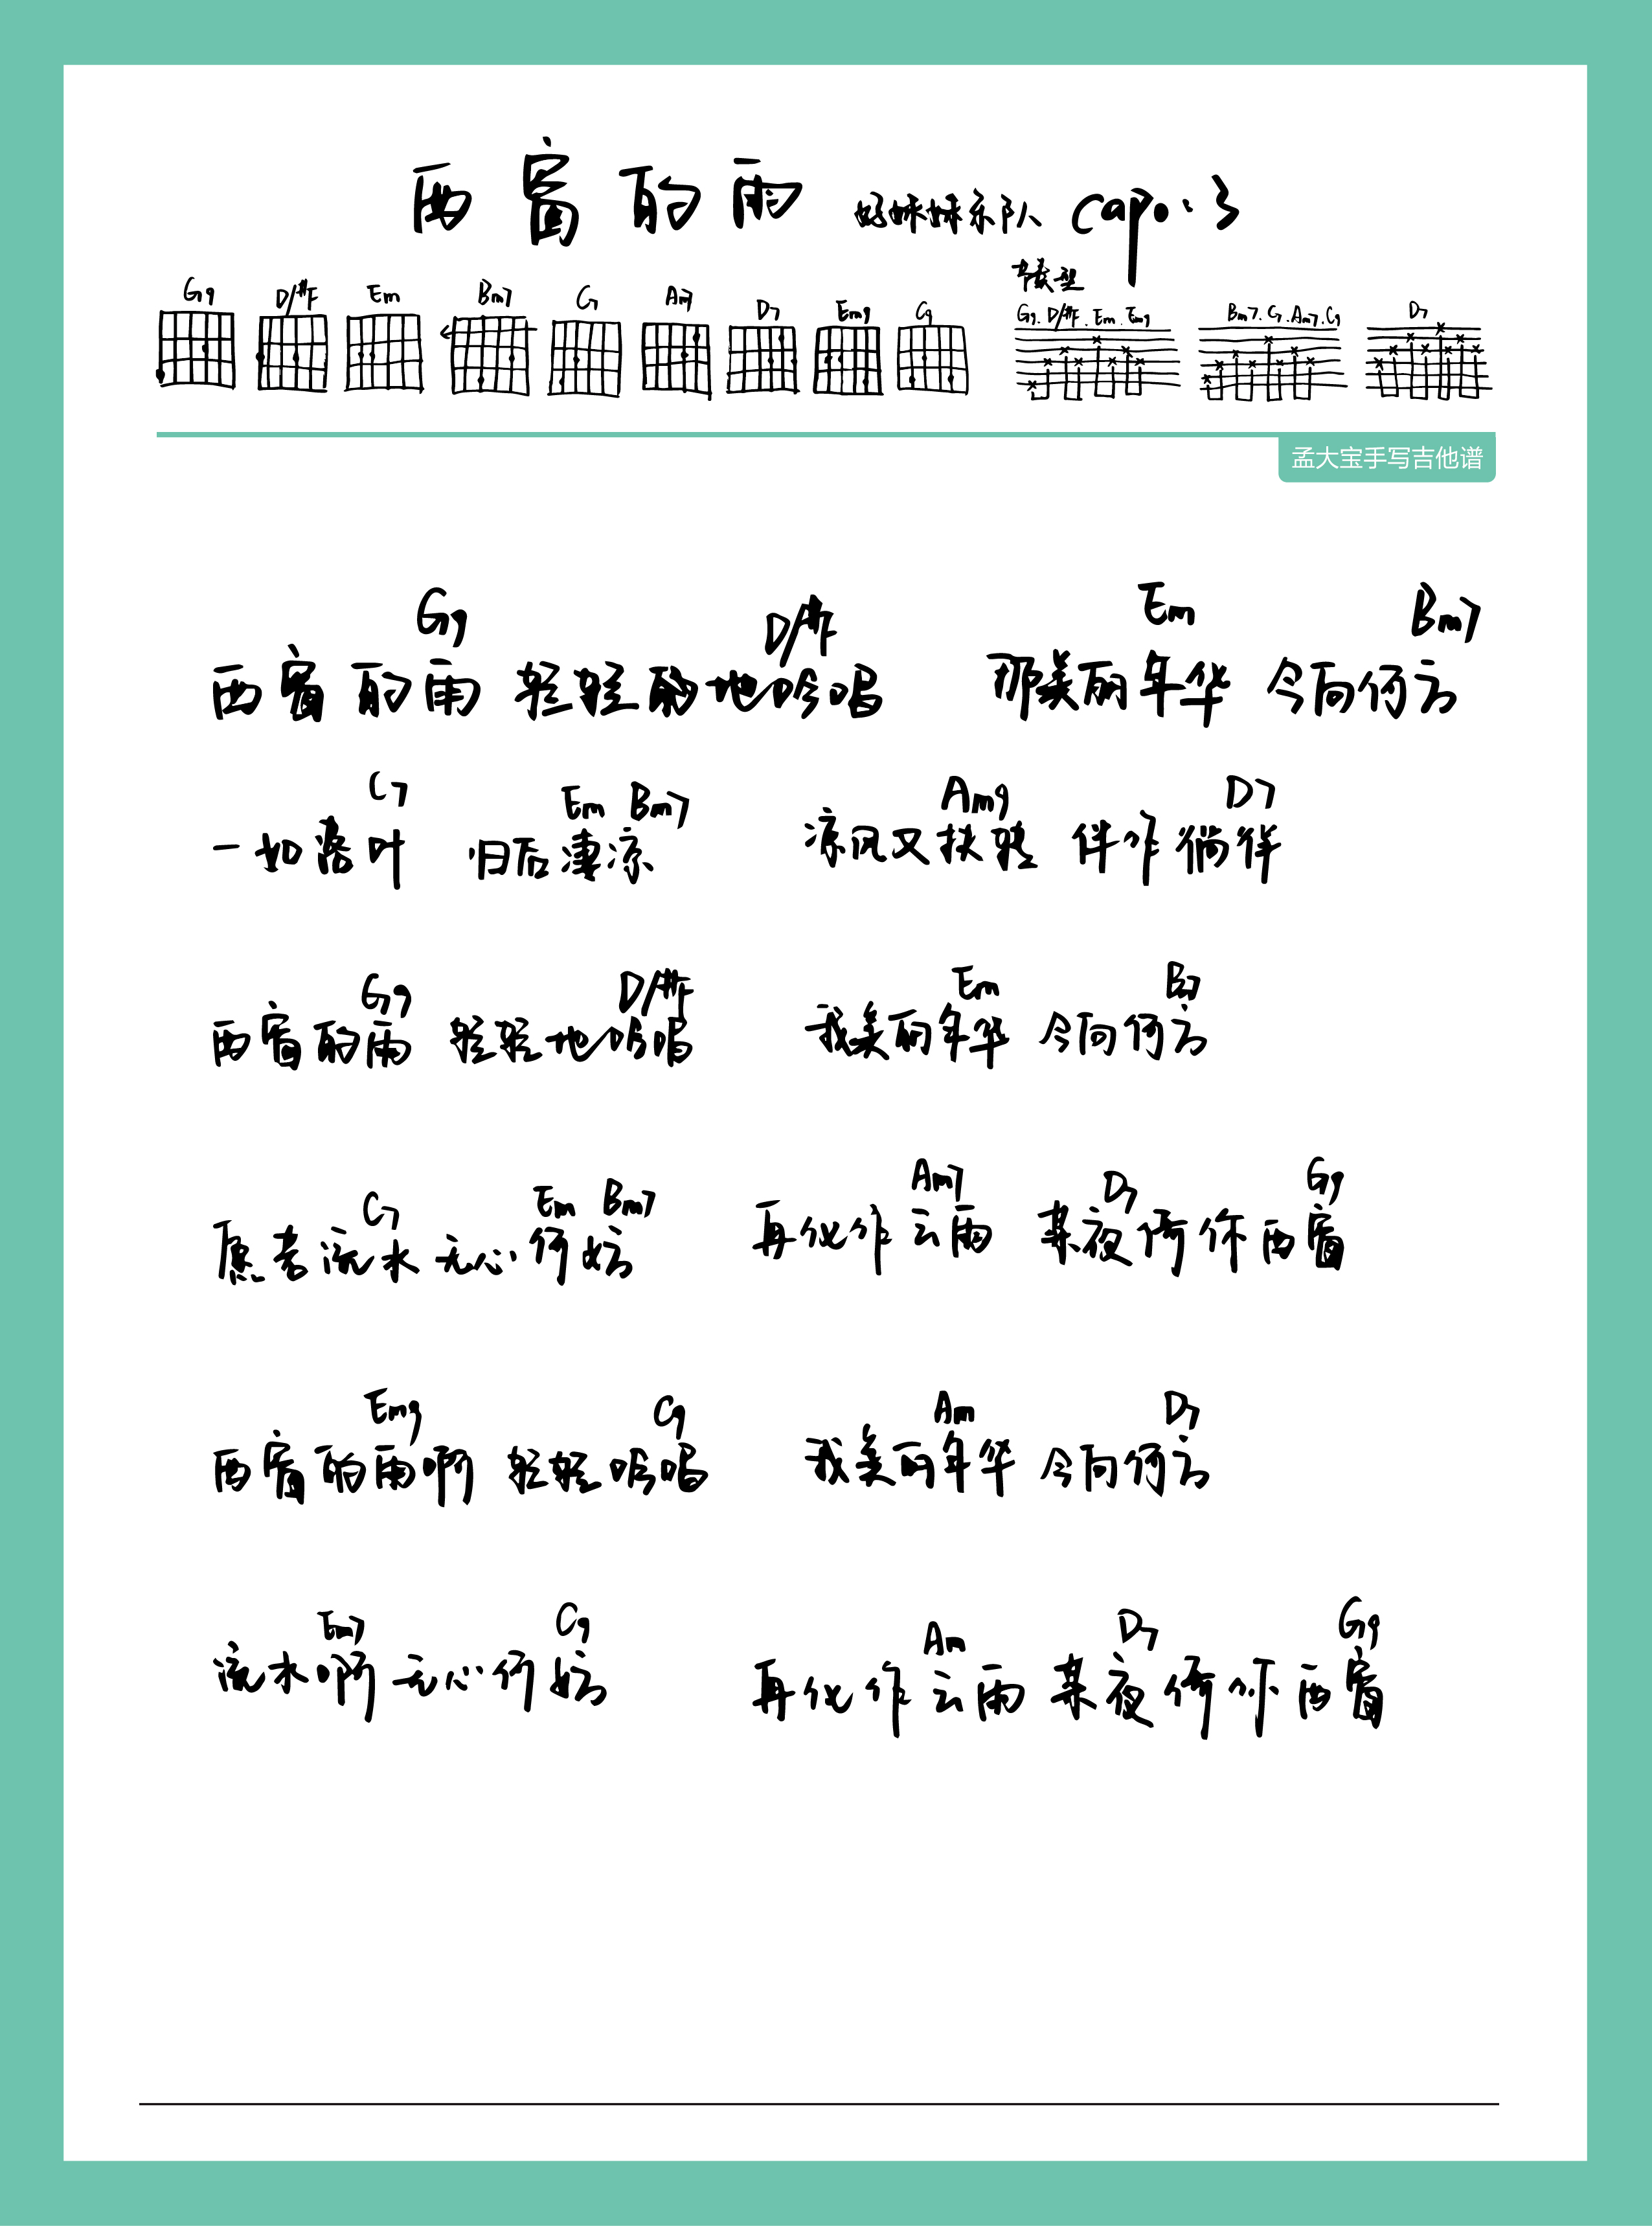 西窗的雨 好妹妹乐队 capo:3
G9 D/#F Em Bm7 C7 Am7 D7 Em9 C9
节奏型
G9. D/#F. Em. Em9 Bm7. C7. Am7. C9 D7
孟大宝手写吉他谱
G9 D/#F Em Bm7
西窗的雨 轻轻 地吟唱 那美丽年华 今向何方
C7 Em Bm7 Am9 D7
一如落叶 归后凄凉 凉风又扶 伴作徜徉
G9 D/#F Em B7
西窗的雨 轻轻地吟唱 我美丽年华 今向何方
C7 Em Bm7 Am7 D7 G9
愿者流水无心何妨 再化作云雨 某夜倚你西窗
Em9 C9 Am D7
西窗的雨啊 轻轻吟唱 我美丽年华 今向何方
Em7 C9 Am D7 G9
流水啊无心何妨 再化作云雨 某夜倚你西窗